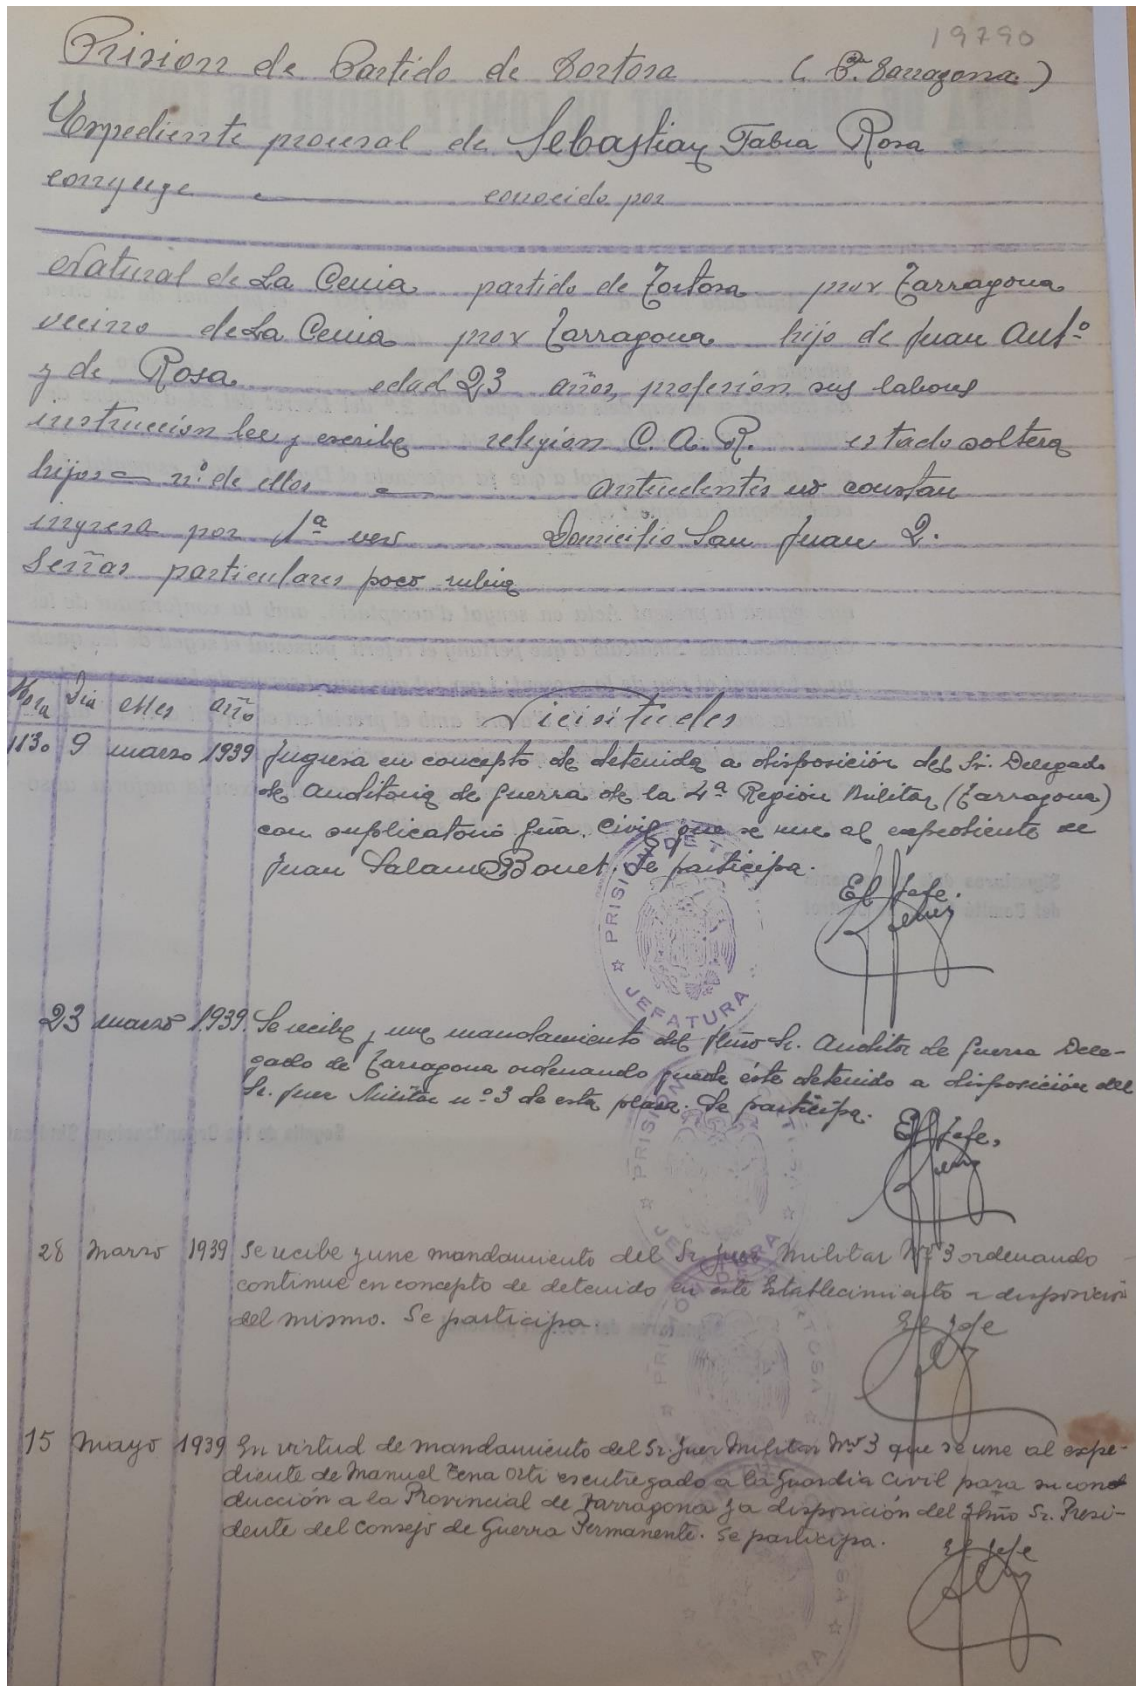 19790
Prision de Partido de Tortosa (Pª Tarragona)
Expediente procesal de Sebastian Fabra Rosa
conyuge — conocido por
Natural de La Cenia partido de Tortosa prov Tarragona
vecino de La Cenia prov Tarragona hijo de Juan Antº
y de Rosa edad 23 años, profesion sus labores
instruccion lee y escribe religion C. A. R. estado soltera
hijos — nº de ellos — antecedentes no constan
ingresa por 1ª vez Domicilio San Juan 2.
Señas particulares poco rubia
Hora Dia Mes año Vicisitudes
1130 9 marzo 1939 Ingresa en concepto de detenida a disposición del Sr. Delegado
de Auditoria de Guerra de la 4ª Región Militar (Tarragona)
con suplicatorio Gña. Civil que se une al expediente de
Juan Salam Bonet. Se participa.
El Jefe.
23 marzo 1939. Se recibe y une mandamiento del Iltmo Sr. Auditor de Guerra Dele-
gado de Tarragona ordenando quede éste detenido a disposición del
Sr. Juez Militar nº 3 de esta plaza. Se participa.
El Jefe,
28 Marzo 1939 Se recibe y une mandamiento del Sr. Juez Militar Nº 3 ordenando
continue en concepto de detenido en este Establecimiento a disposición
del mismo. Se participa.
El Jefe
15 Mayo 1939 En virtud de mandamiento del Sr. Juez Militar Nº 3 que se une al expe-
diente de Manuel Tena Orti es entregado a la Guardia Civil para su con
ducción a la Provincial de Tarragona y a disposición del Iltmo Sr. Presi-
dente del Consejo de Guerra Permanente. Se participa.
El Jefe
PRISION DE
JEFATURA
PRISION
JEFATURA